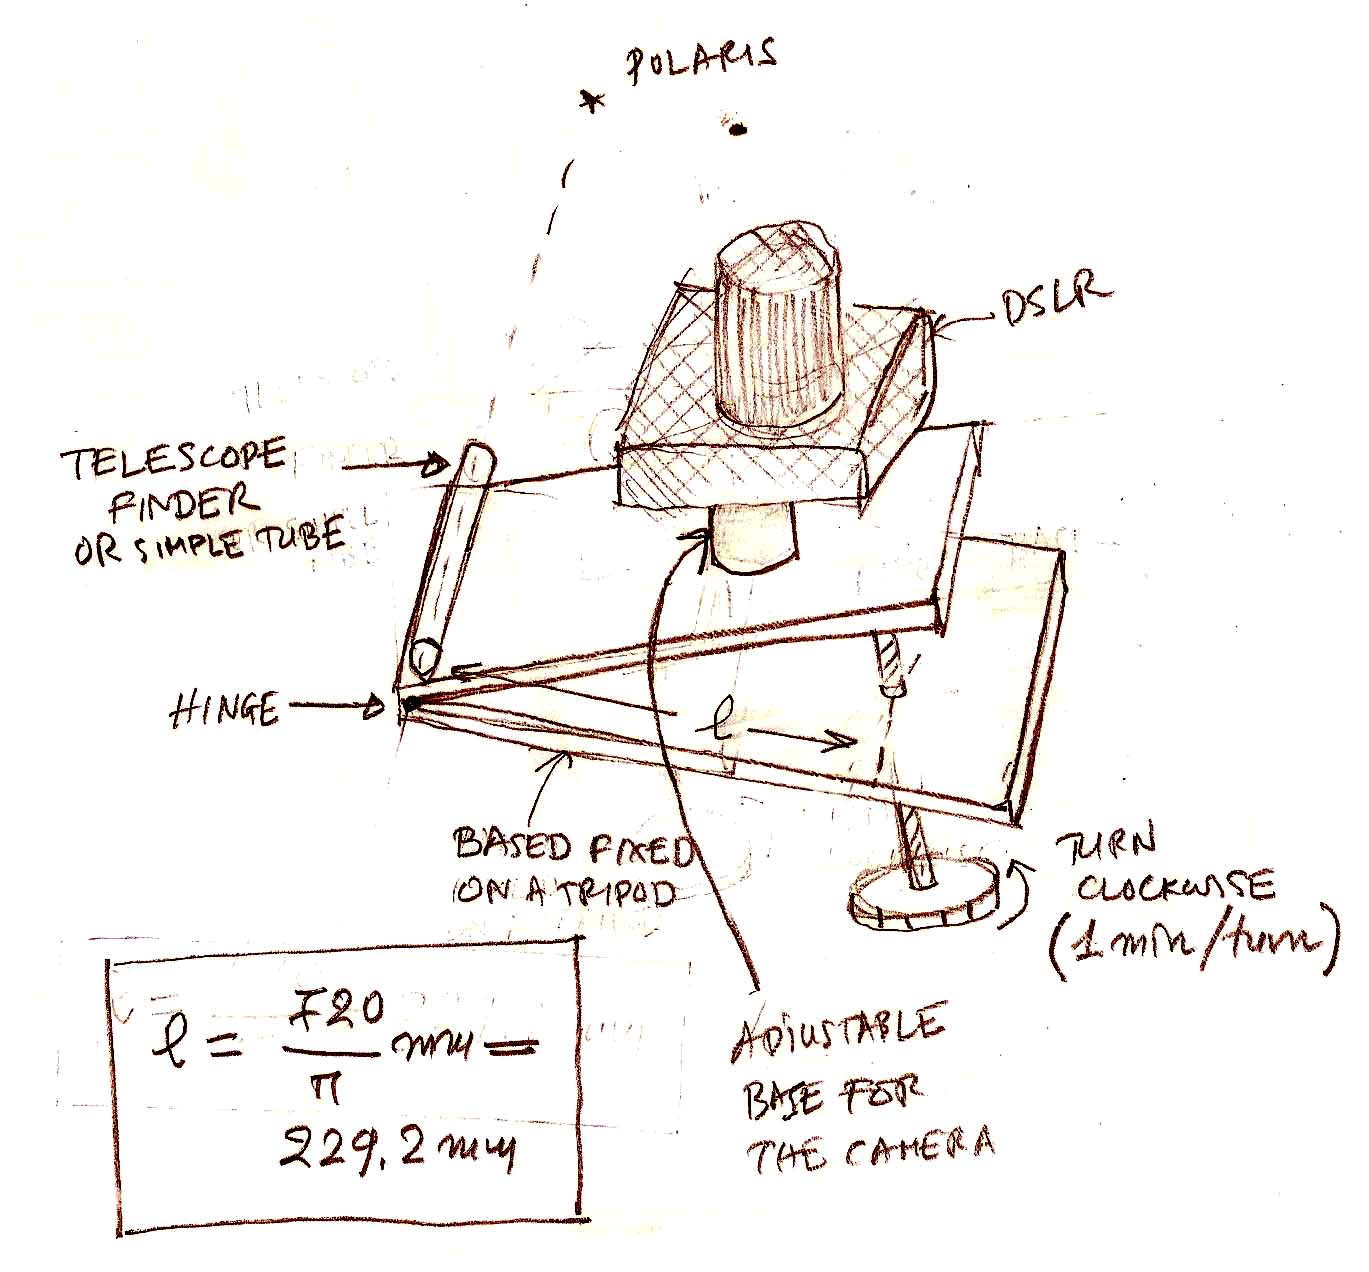 POLARIS
DSLR
TELESCOPE
FINDER
OR SIMPLE TUBE
HINGE
l
BASED FIXED
ON A TRIPOD
TURN
CLOCKWISE
(1 min/turn)
l = 720/π mm =
229,2 mm
ADIUSTABLE
BASE FOR
THE CAMERA